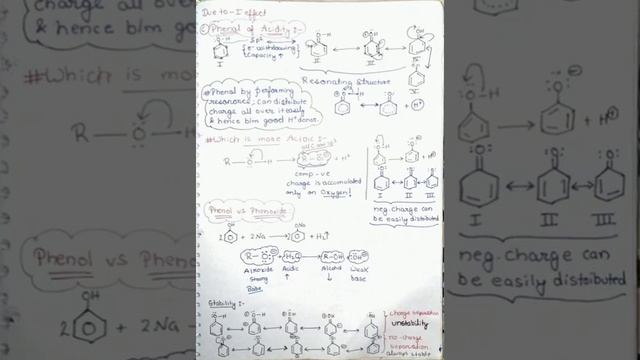 Due to -I effect
Phenol of Acidity :-
Sp²
(e⁻ withdrawing
Capacity ↑
I
II
III
IV
V
Resonating Structure
Phenol by performing
resonance, can distribute
charge all over it easily
& hence b/m good H⁺ donor.
+ H⁺
#Which is more Acidic :-
R — O — H → R — O⊖ + H⁺
comp -ve
charge is accumulated
only on Oxygen!
+ H⁺
I
II
III
neg charge can
be easily distributed
Phenol vs Phenoxide
OH
ONa
2 + 2Na → + H₂↑
R—O⊖ + H₂O R—OH + OH
Alkoxide Acidic Alcohol Weak
Strong ↑ ↓ base
Base
Stability :-
charge separation
unstability
no-charge
separation
charge all over it easily
& hence b/m good
#Which is
R — O
Phenol vs Ph
OH
2 + 2Na
+ H⊕
I
II
III
neg. charge can
be easily distributed